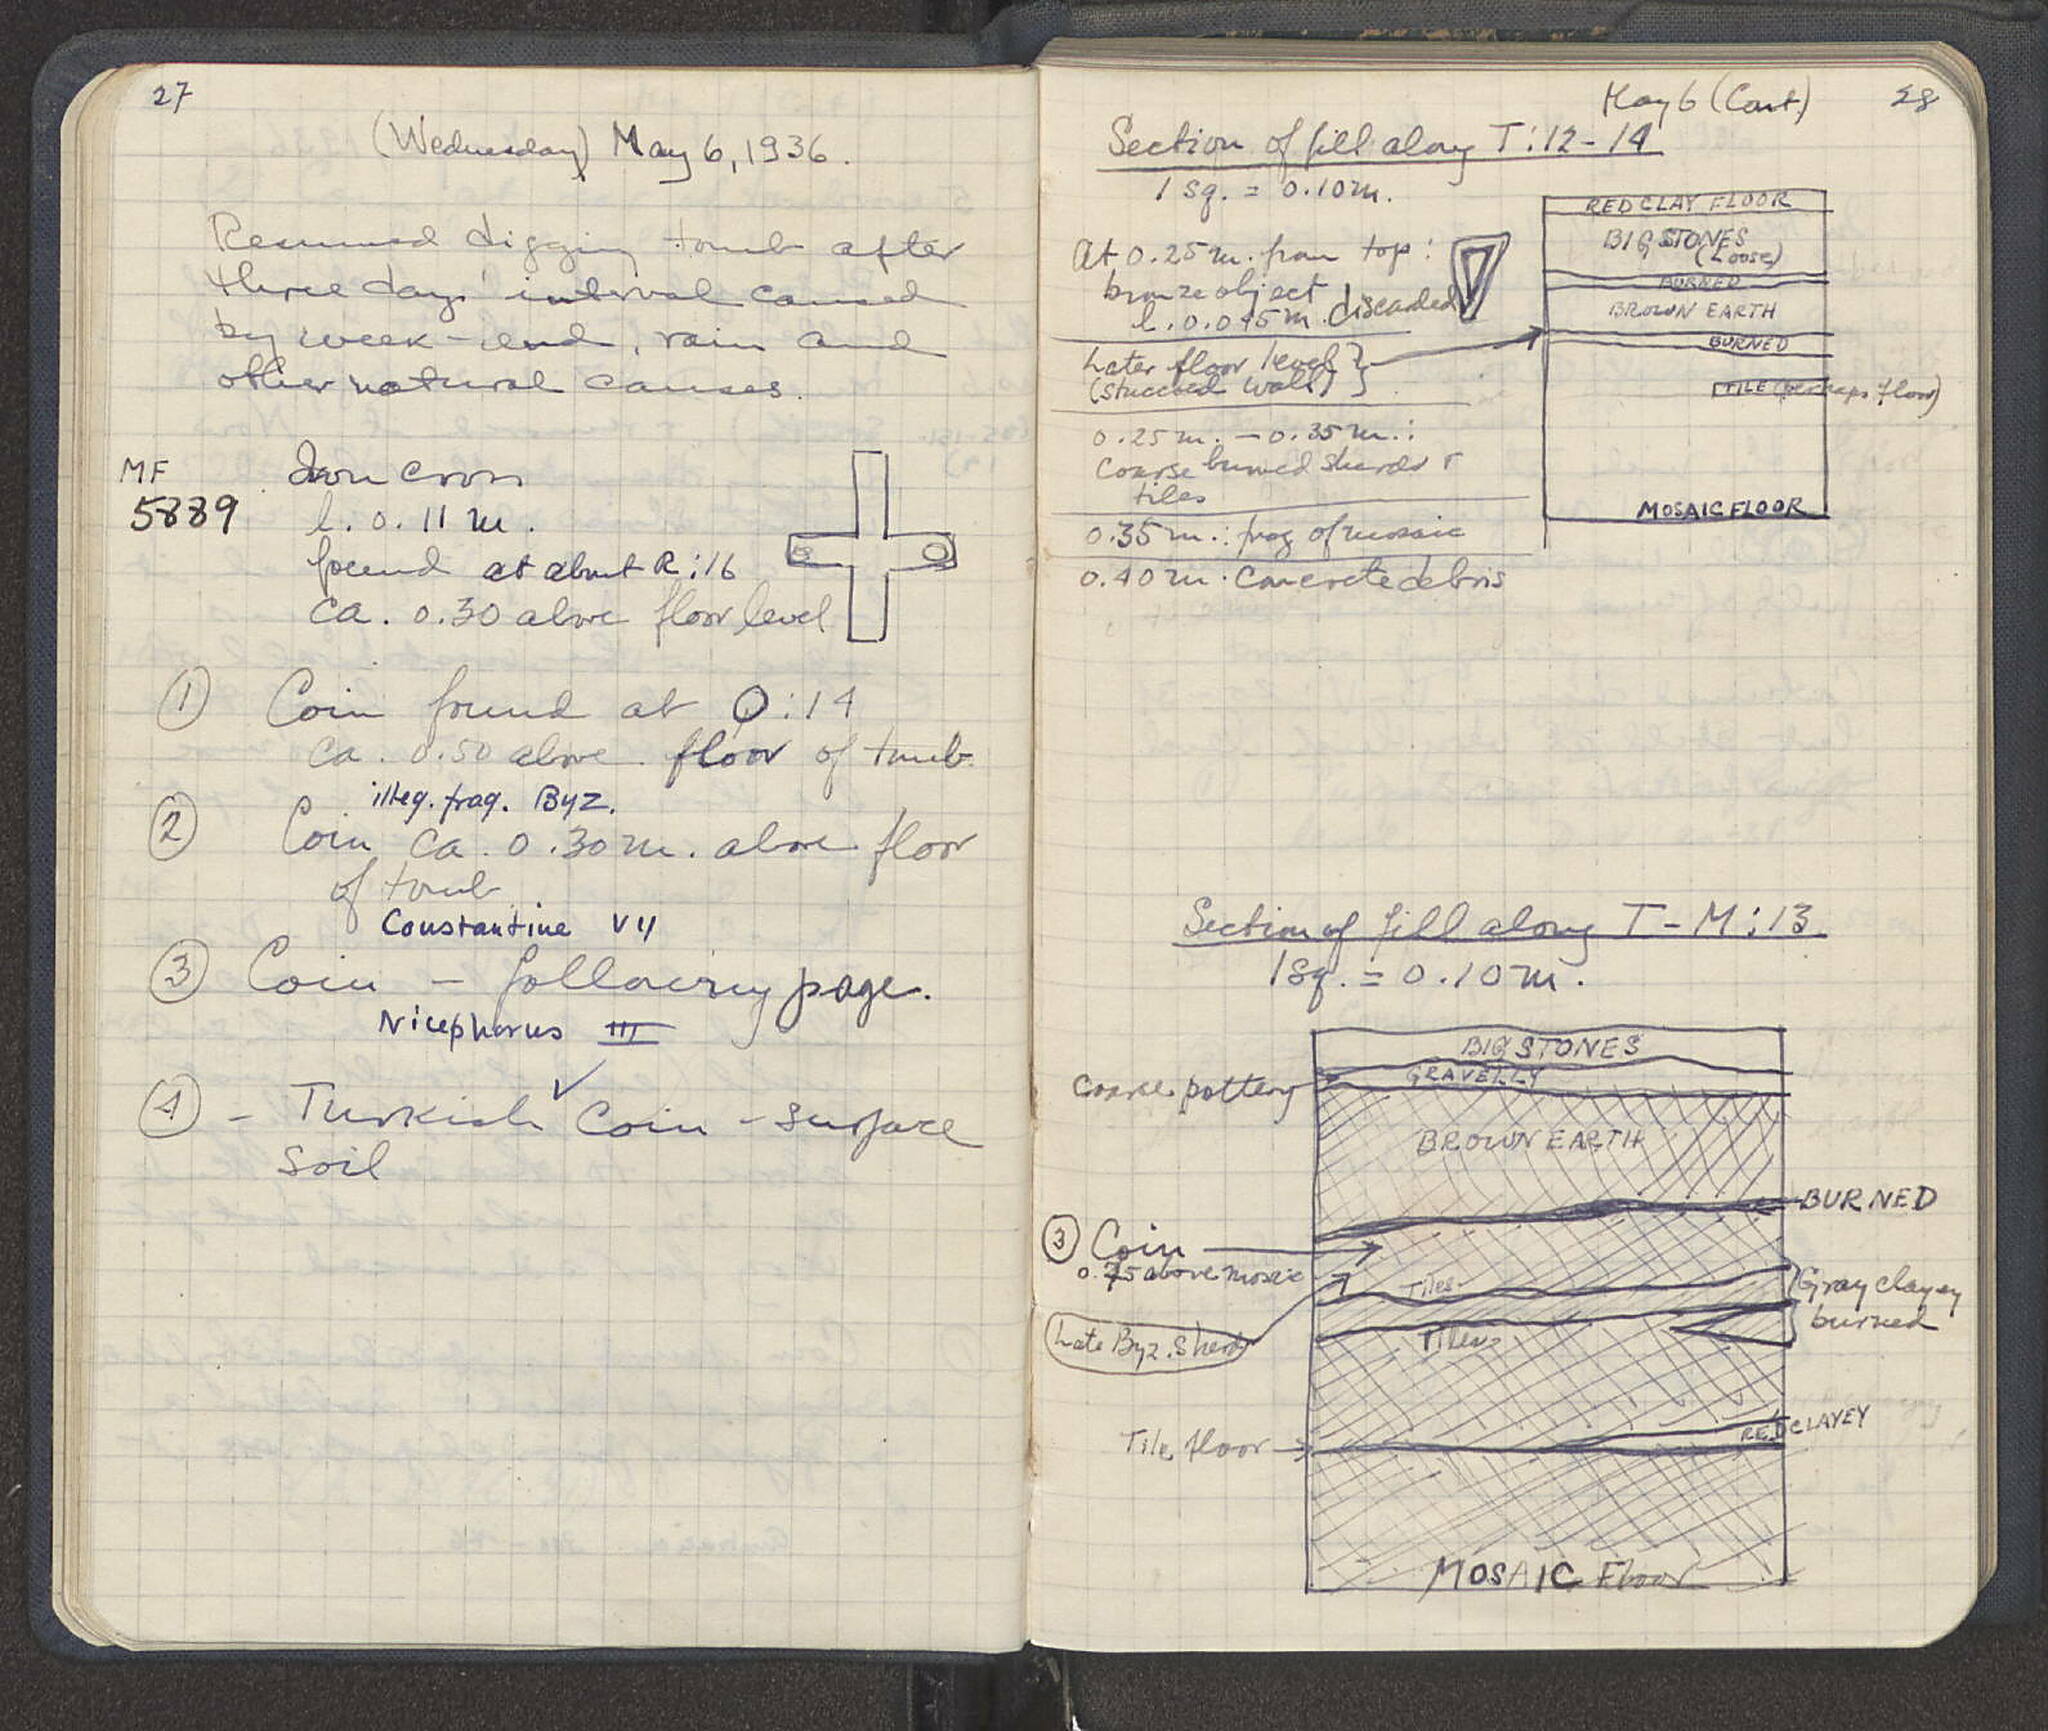 27
(Wednesday) May 6, 1936.
Resumed digging tomb after
three days' interval caused
by week-end, rain and
other natural causes.
MF
5889
Iron cross
l. 0.11 m.
found at about R:16
ca. 0.30 above floor level
① Coin found at Q:14
ca. 0.50 above floor of tomb
illeg. frag. Byz.
② Coin ca. 0.30 m. above floor
of tomb
Constantine VII
③ Coin - following page.
Nicephorus III
④ - Turkish ✓ Coin - surface
soil
May 6 (Cont.) 28
Section of fill along T:12-14
1 sq. = 0.10 m.
At 0.25 m. from top:
bronze object
l. 0.045 m. discarded
Later floor level
(stuccoed wall)
0.25 m. - 0.35 m.:
Coarse burned sherds +
tiles
0.35 m.: frag of mosaic
0.40 m. Concrete debris
RED CLAY FLOOR
BIG STONES
(Loose)
BURNED
BROWN EARTH
BURNED
TILE (perhaps floor)
MOSAIC FLOOR
Section of fill along T-M:13
1 sq. = 0.10 m.
BIG STONES
GRAVELLY
Coarse pottery
BROWN EARTH
BURNED
③ Coin
above mosaic
Tiles
Gray clayey
burned
Late Byz. Sherds
Tiles
RED CLAYEY
Tile floor
MOSAIC Floor